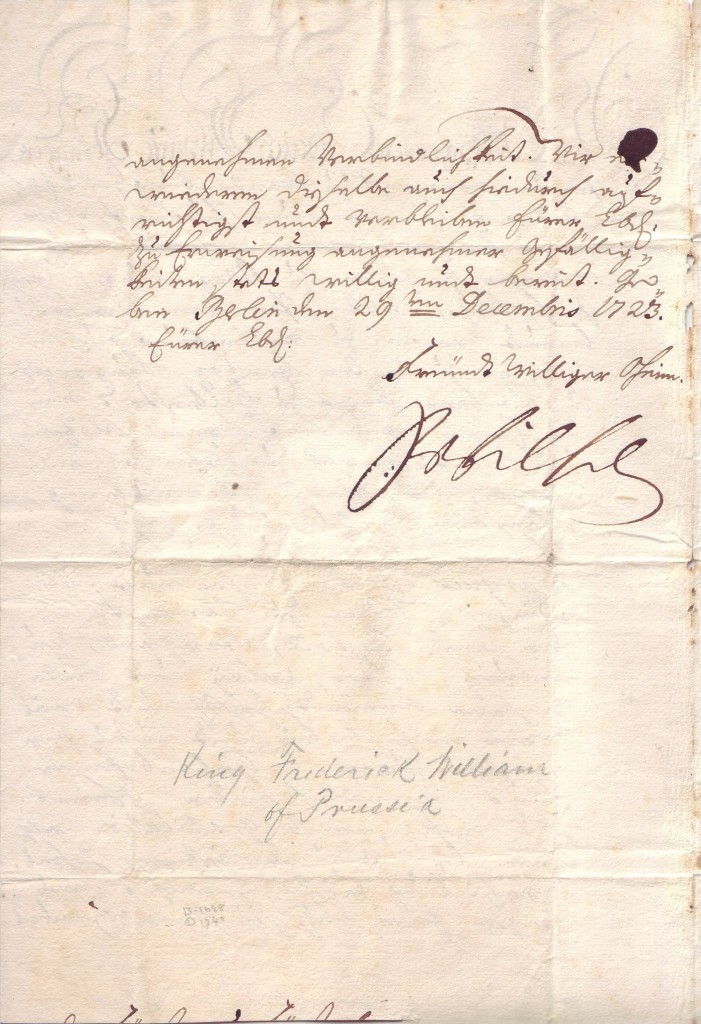 angenehmen Verbindlichkeit. Wir er-
wiederen dieselbe auch hiedurch auf-
richtigst undt verbleiben Eürer Lbd.
zu Erweisung angenehmer Gefällig-
keiten stets willig undt bereit. Ge-
ben Berlin den 29ten Decembris 1723.
Eürer Lbd:
Freündt williger Oheim.
King Frederick William
of Prussia